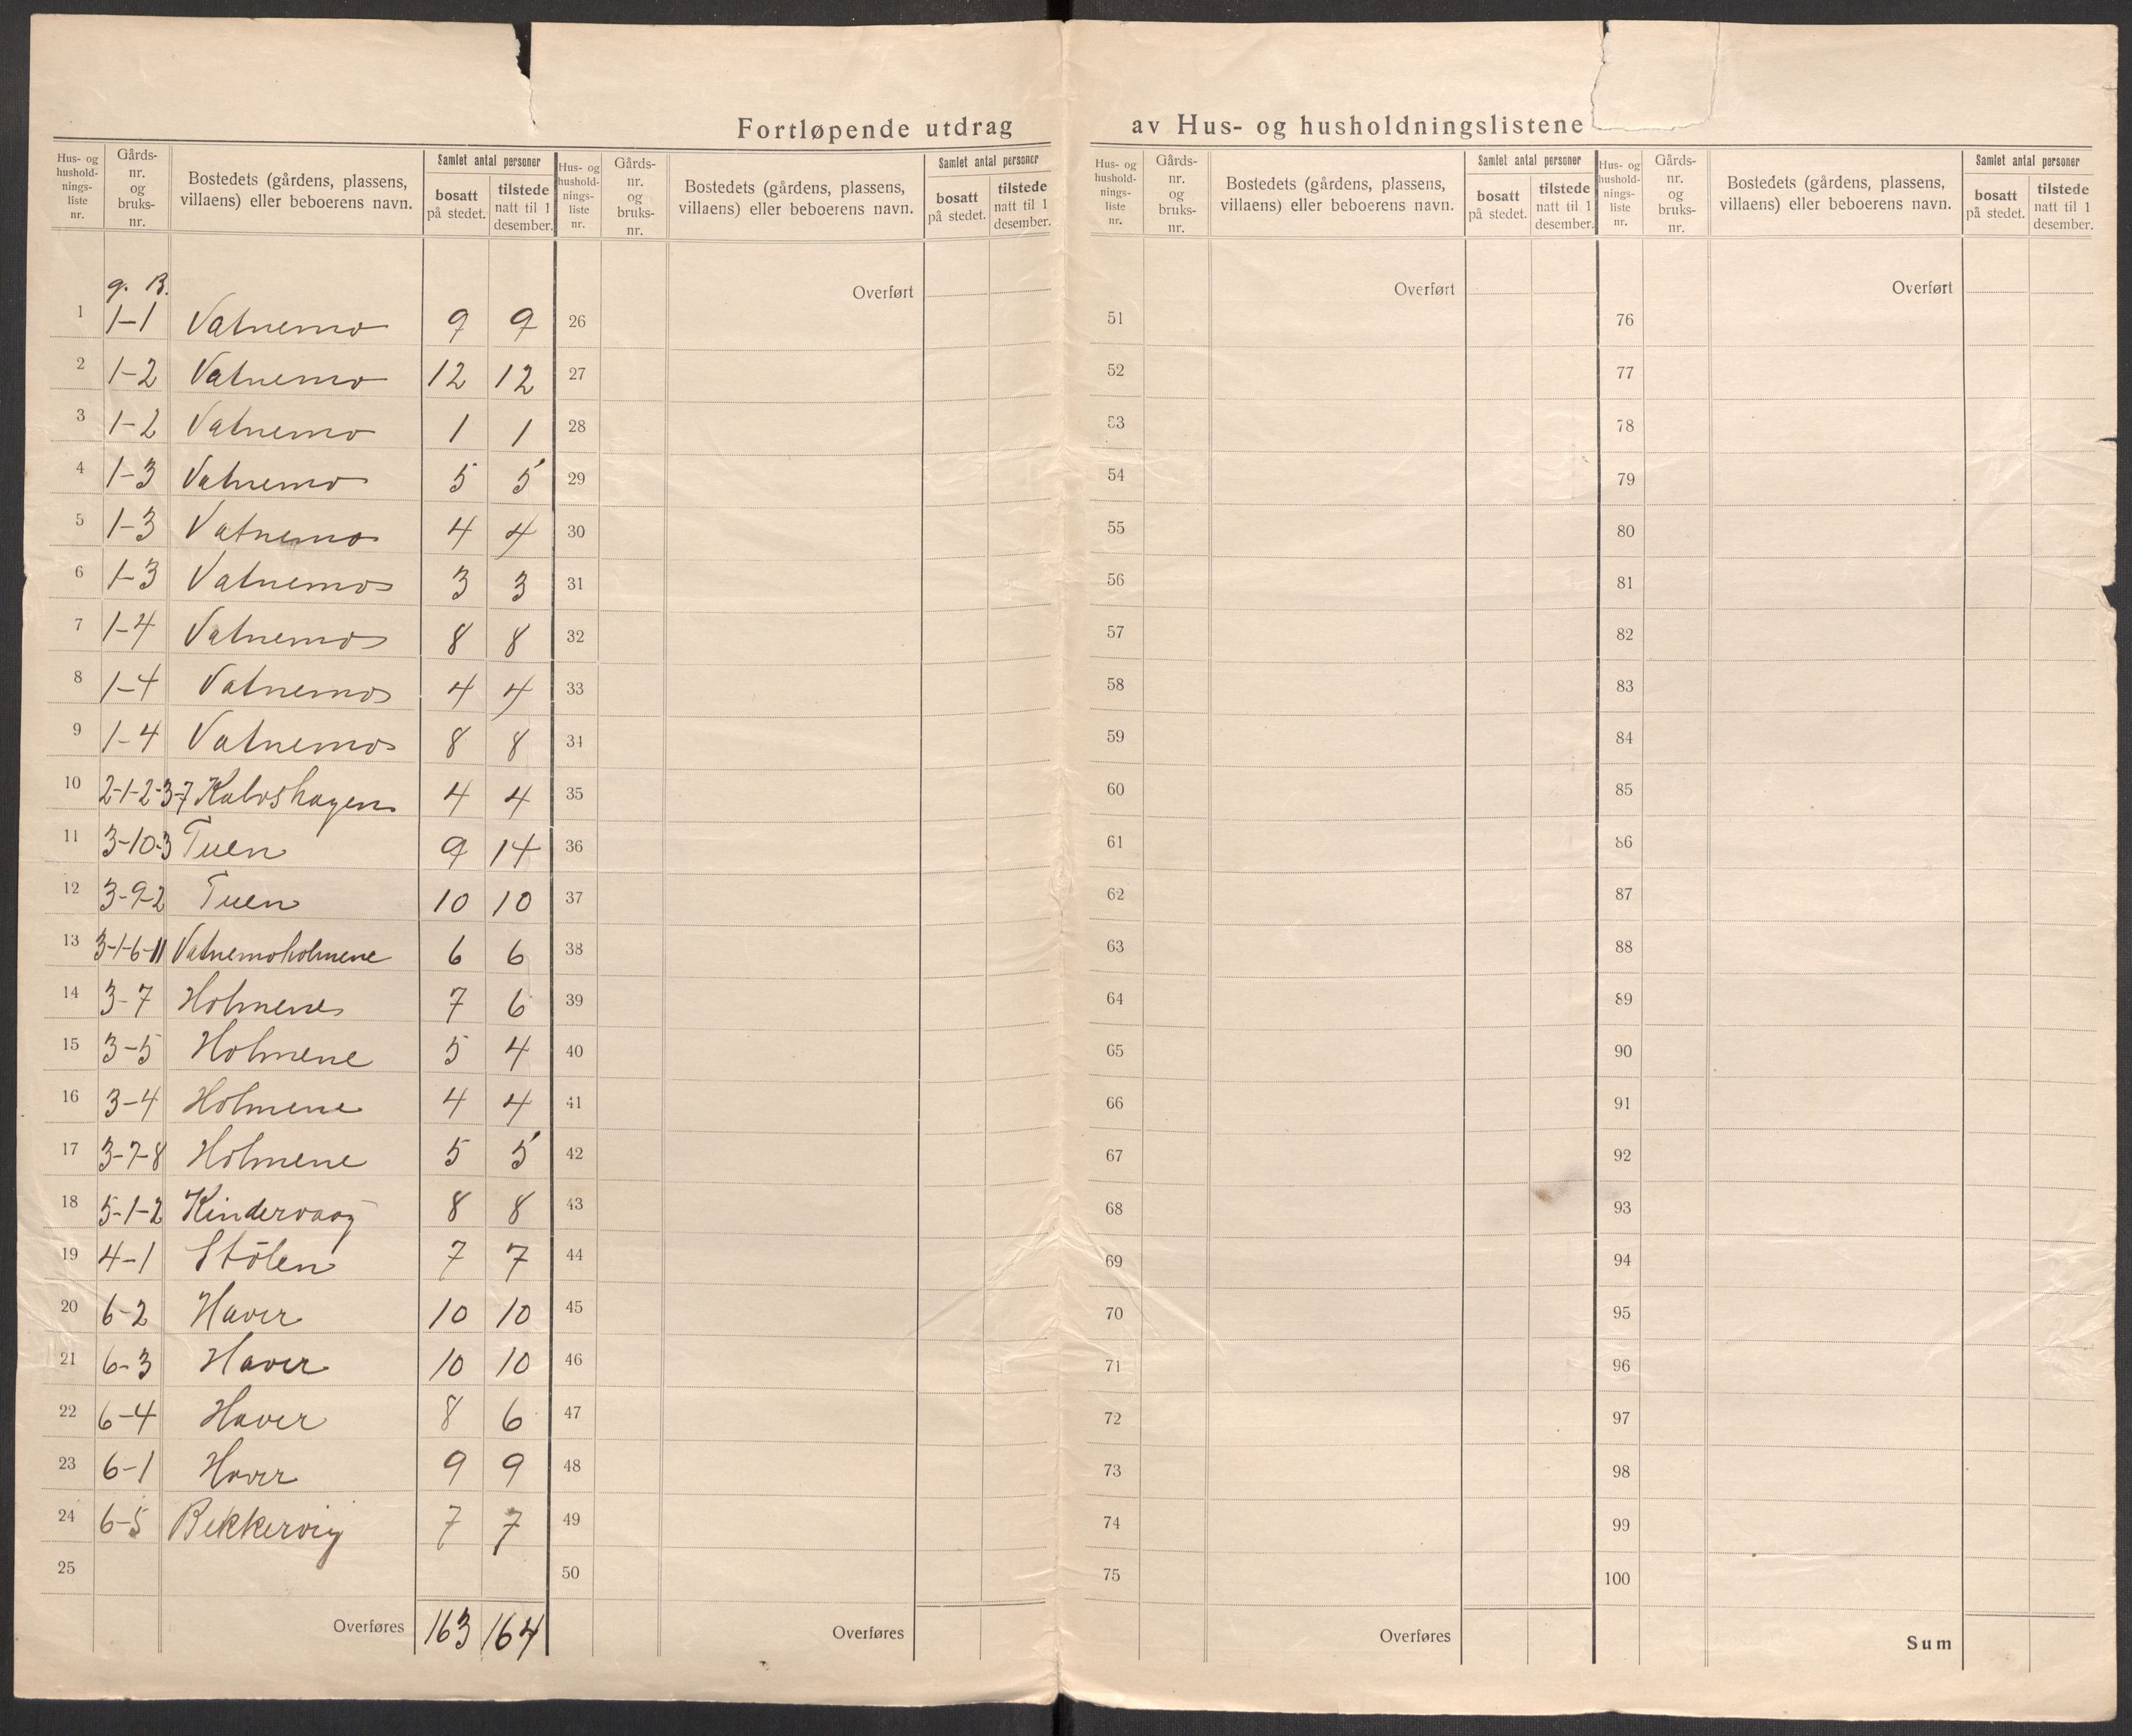 Fortløpende utdrag av Hus- og husholdningslistene
Hus- og hushold-nings-liste nr. Gårds-nr. og bruks-nr. Bostedets (gårdens, plassens, villaens) eller beboerens navn. Samlet antal personer bosatt på stedet. tilstede natt til 1 desember.
Hus- og hushold-nings-liste nr. Gårds-nr. og bruks-nr. Bostedets (gårdens, plassens, villaens) eller beboerens navn. Samlet antal personer bosatt på stedet. tilstede natt til 1 desember.
Hus- og hushold-nings-liste nr. Gårds-nr. og bruks-nr. Bostedets (gårdens, plassens, villaens) eller beboerens navn. Samlet antal personer bosatt på stedet. tilstede natt til 1 desember.
Hus- og hushold-nings-liste nr. Gårds-nr. og bruks-nr. Bostedets (gårdens, plassens, villaens) eller beboerens navn. Samlet antal personer bosatt på stedet. tilstede natt til 1 desember.
g. B.
Overført Overført Overført
1 1-1 Vatnemo 9 9 26 51 76
2 1-2 Vatnemo 12 12 27 52 77
3 1-2 Vatnemo 1 1 28 53 78
4 1-3 Vatnemo 5 5 29 54 79
5 1-3 Vatnemo 4 4 30 55 80
6 1-3 Vatnemo 3 3 31 56 81
7 1-4 Vatnemo 8 8 32 57 82
8 1-4 Vatnemo 4 4 33 58 83
9 1-4 Vatnemo 8 8 34 59 84
10 2-1-2-3-7 Kalvshagen 4 4 35 60 85
11 3-10-3 Tuen 9 14 36 61 86
12 3-9-2 Tuen 10 10 37 62 87
13 3-1-6-11 Vatnemoholmene 6 6 38 63 88
14 3-7 Holmene 7 6 39 64 89
15 3-5 Holmene 5 4 40 65 90
16 3-4 Holmene 4 4 41 66 91
17 3-7-8 Holmene 5 5 42 67 92
18 5-1-2 Kindervaag 8 8 43 68 93
19 4-1 Stölen 7 7 44 69 94
20 6-2 Haver 10 10 45 70 95
21 6-3 Haver 10 10 46 71 96
22 6-4 Haver 8 6 47 72 97
23 6-1 Haver 9 9 48 73 98
24 6-5 Bekkervig 7 7 49 74 99
25 50 75 100
Overføres 163 164 Overføres Overføres Sum